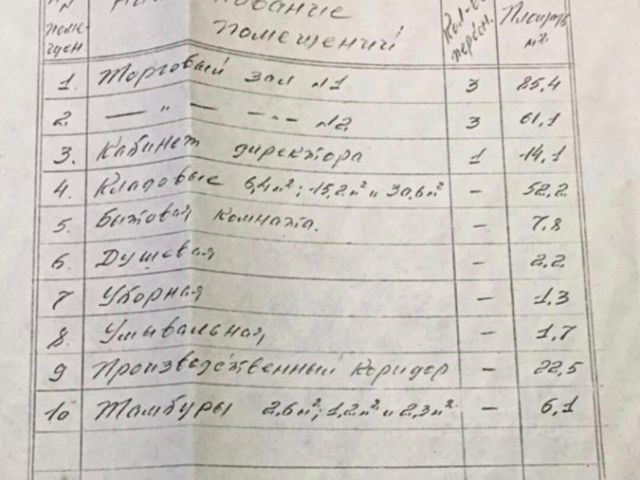 NN помещен. Наименование помещений Кол-во персон. Площадь м².
1. Торговый зал №1 3 85,4
2. — " — — . - №2 3 61,1
3. Кабинет директора 1 14,1
4. Кладовые 6,4м²; 15,2м² и 30,6м² - 52,2
5. Бытовая комната. - 7,8
6 Душевая - 2,2
7 Уборная - 1,3
8. Умывальная - 1,7
9 Производственный коридор - 22,5
10 Тамбуры 2,6м²; 1,2м² и 2,3м² - 6,1